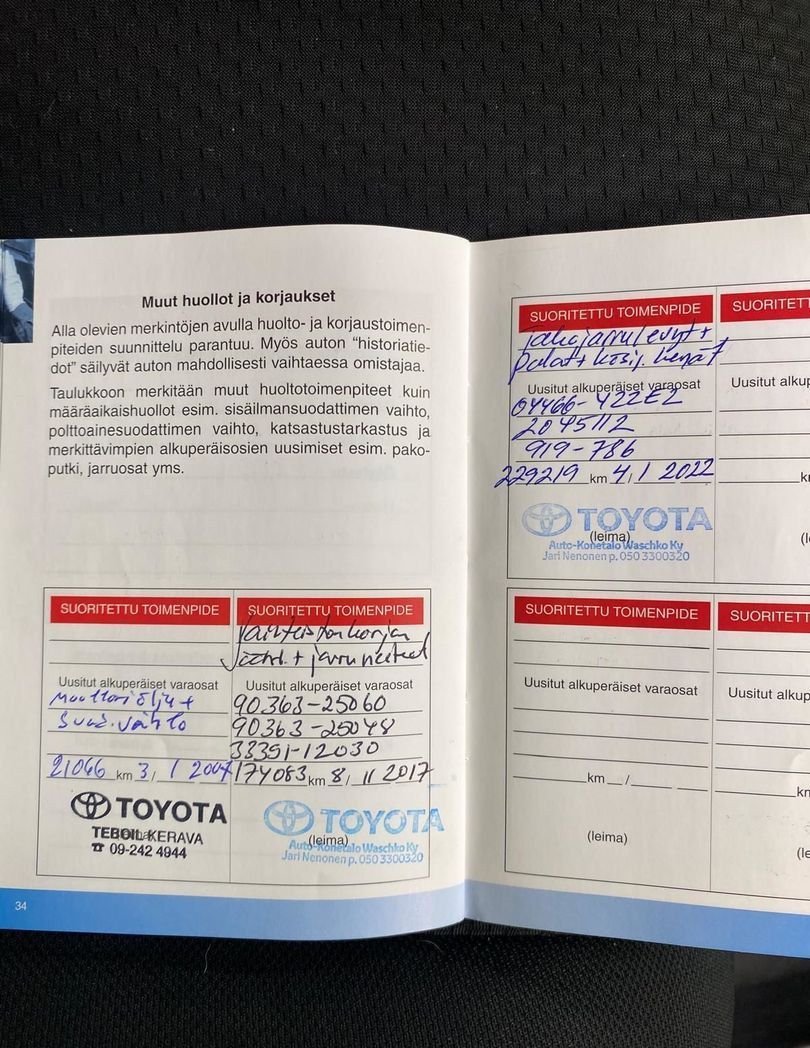 Muut huollot ja korjaukset
Alla olevien merkintöjen avulla huolto- ja korjaustoimen-
piteiden suunnittelu parantuu. Myös auton "historiatie-
dot" säilyvät auton mahdollisesti vaihtaessa omistajaa.
Taulukkoon merkitään muut huoltotoimenpiteet kuin
määräaikaishuollot esim. sisäilmansuodattimen vaihto,
polttoainesuodattimen vaihto, katsastustarkastus ja
merkittävimpien alkuperäisosien uusimiset esim. pako-
putki, jarruosat yms.
SUORITETTU TOIMENPIDE
Uusitut alkuperäiset varaosat
Moottoriöljy+
Suod. vaihto
21066 km 3/1 2007
TOYOTA
TEBOIL KERAVA
☎ 09-242 4944
SUORITETTU TOIMENPIDE
Vaihteiston korjau
Jäähd. + jarrunesteet
Uusitut alkuperäiset varaosat
90363-25060
90363-25048
33351-12030
174083 km 8/11 2017
TOYOTA
(leima)
Auto-Konetalo Waschko Ky
Jari Nenonen p. 050 3300320
34
SUORITETTU TOIMENPIDE
Takajarrulevyt+
palat+ käsij. kengät
Uusitut alkuperäiset varaosat
04466-YZZE2
2045112
919-786
229219 km 4/1 2022
TOYOTA
(leima)
Auto-Konetalo Waschko Ky
Jari Nenonen p. 050 3300320
SUORITETT
Uusitut alkup
k
(l
SUORITETTU TOIMENPIDE
Uusitut alkuperäiset varaosat
km /
(leima)
SUORITETT
Uusitut alkup
kn
(le